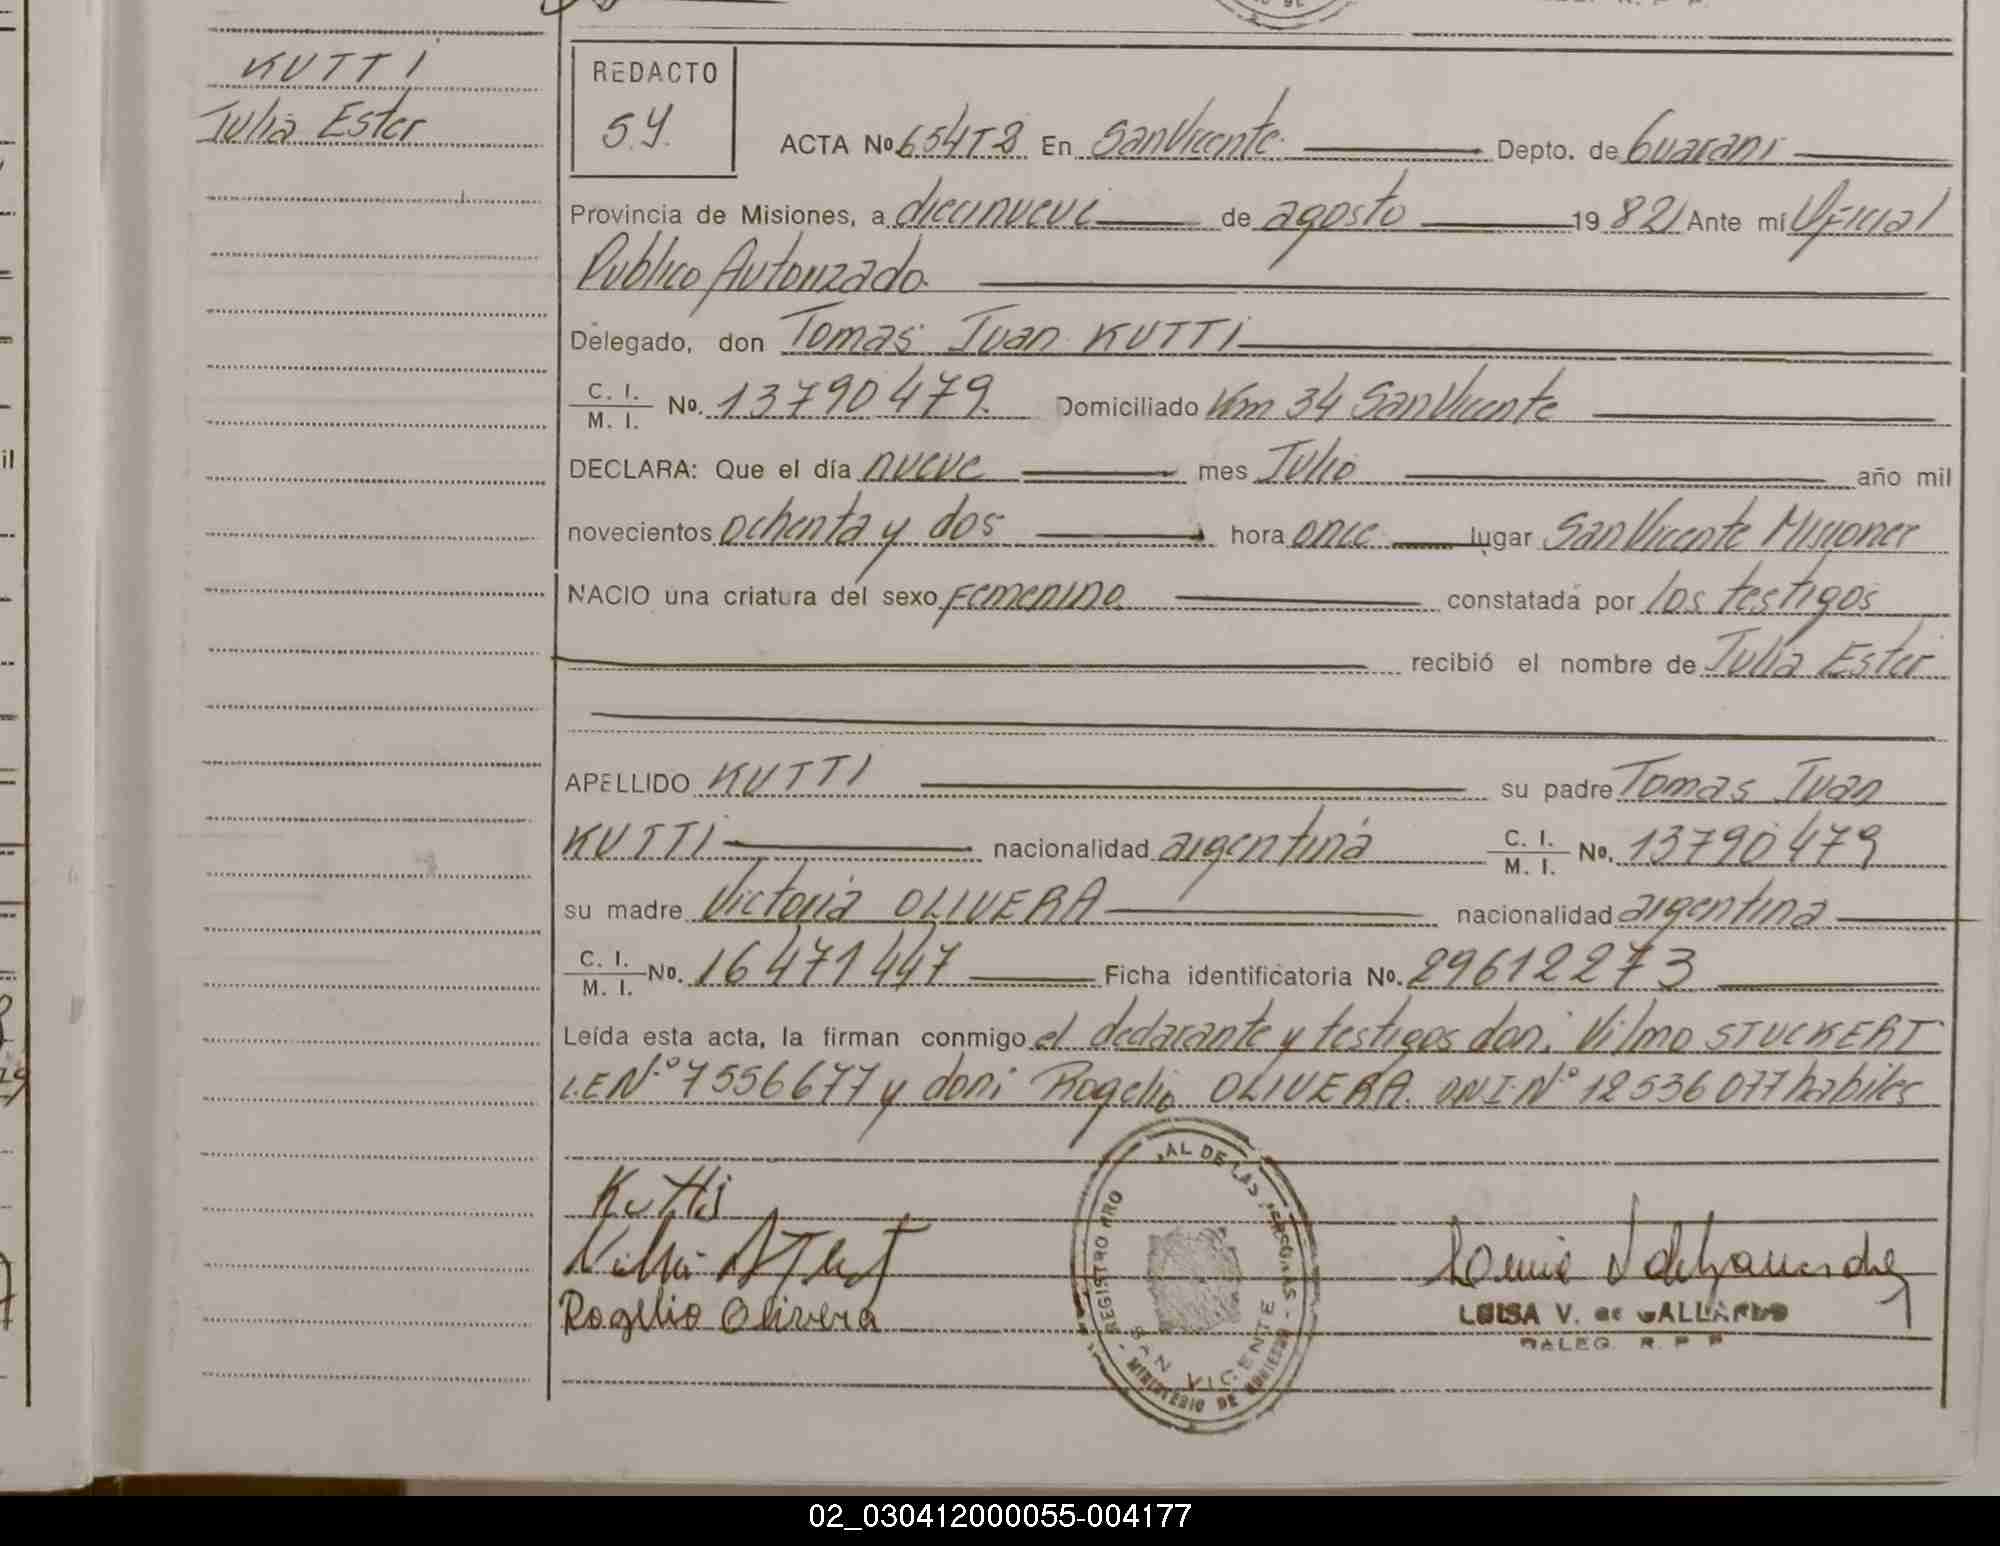 KUTTI
Julia Ester
REDACTO
S.Y.
ACTA No 654T8 En San Vicente Depto. de Guarani
Provincia de Misiones, a diecinueve de agosto 1982 Ante mí Oficial
Publico Autorizado
Delegado, don Tomas Juan KUTTI
C. I. / M. I. No. 13790479 Domiciliado Km 34 San Vicente
DECLARA: Que el día nueve mes Julio año mil
novecientos ochenta y dos hora once lugar San Vicente Misiones
NACIO una criatura del sexo Femenino constatada por los testigos
recibió el nombre de Julia Ester
APELLIDO KUTTI su padre Tomas Juan
KUTTI nacionalidad argentina C. I. / M. I. No. 13790479
su madre Victoria OLIVERA nacionalidad argentina
C. I. / M. I. No. 16471447 Ficha identificatoria No. 29612273
Leída esta acta, la firman conmigo el declarante y testigos don: Vilmo STUCKERT
L.E Nº 7556677 y don: Rogelio OLIVERA. DNI Nº 12536077 habiles
Kutti
Rogelio Olivera
REGISTRO PRO AL DE LAS PERSONAS
SAN VICENTE
MINISTERIO DE GOBIERNO
LUISA V. de GALLARDO
DELEG. R. P. P.
02_030412000055-004177